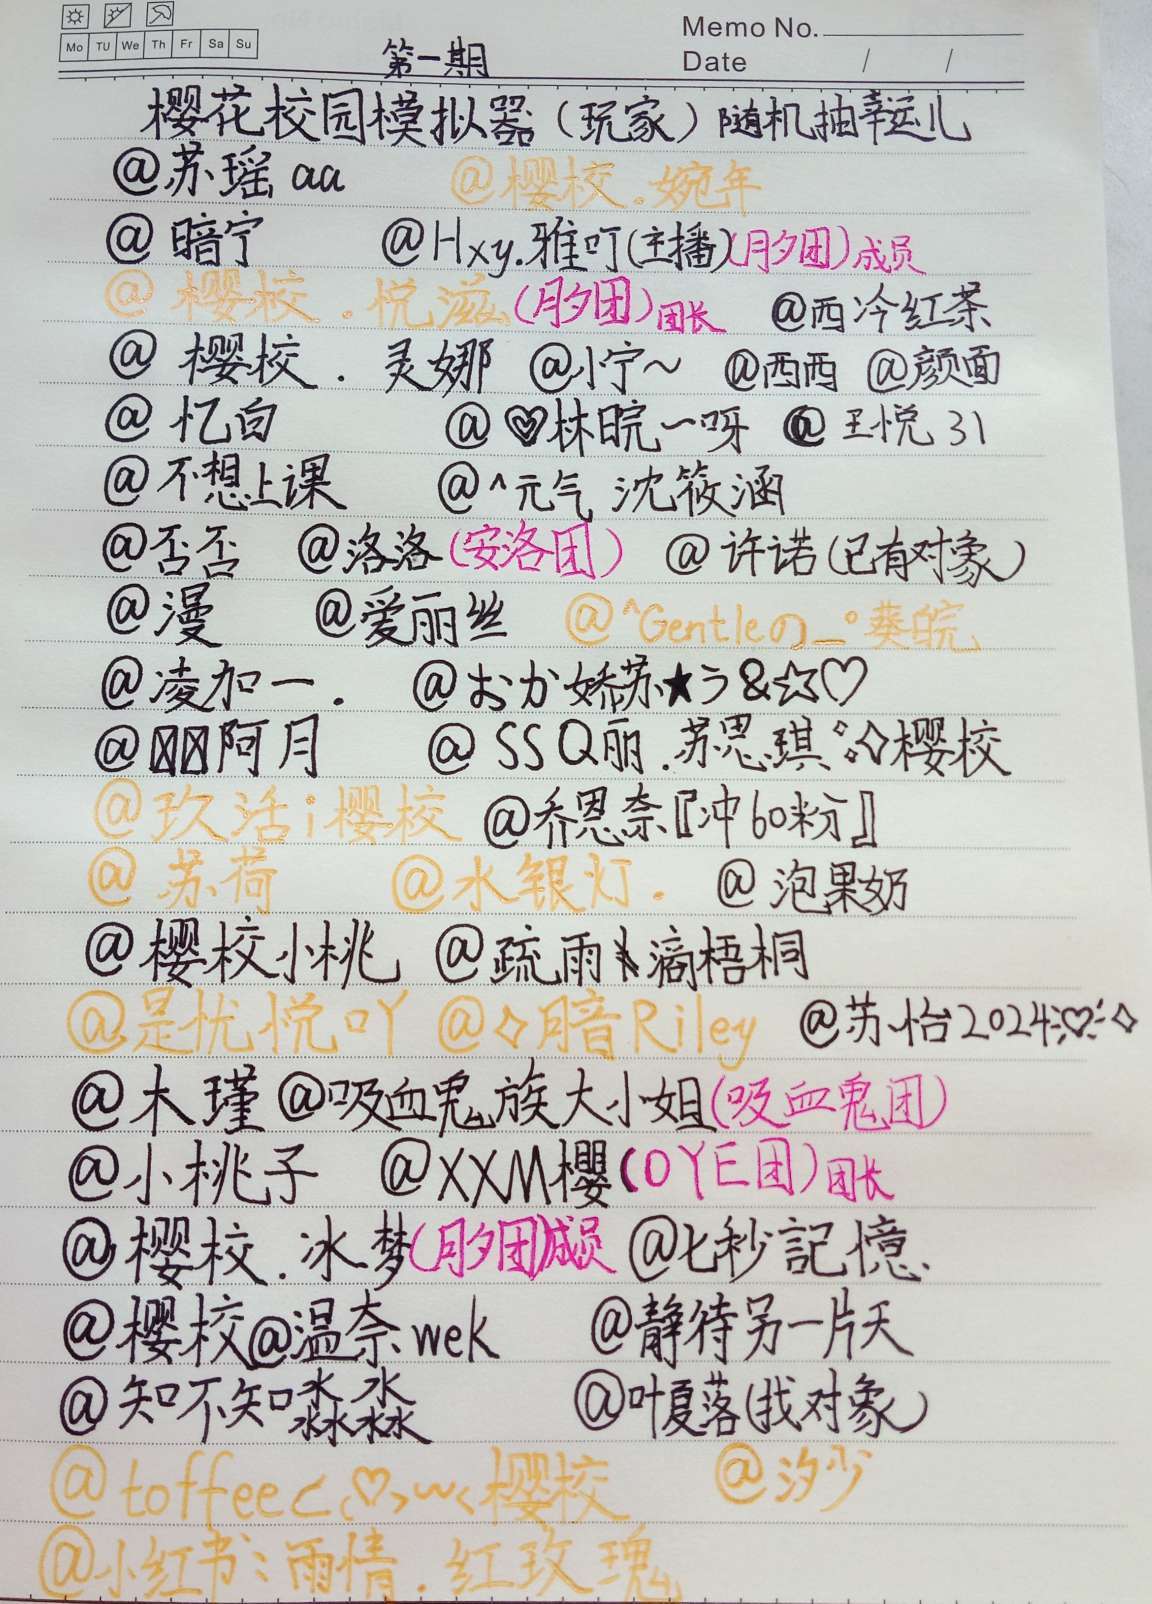 Memo No.
Mo TU We Th Fr Sa Su
Date / /
第一期
樱花校园模拟器（玩家）随机抽幸运儿
@苏瑶aa @樱校.婉年
@暗宁 @Hxy.雅叮(主播)(月夕团)成员
@樱校.悦滋(月夕团)团长 @西冷红茶
@樱校.灵娜 @小宁~ @西西 @颜面
@忆白 @♡林晥一呀 @王悦31
@不想上课 @^元气 沈筱涵
@否否 @洛洛(安洛团) @许诺(已有对象)
@漫 @爱丽丝 @^Gentleの_°葵皖
@凌加一. @おか娇苏★う&☆♡
@阿月 @SSQ丽.苏思琪 樱校
@玖活i樱校 @乔恩奈『冲60粉』
@苏荷 @水银灯. @泡果奶
@樱校小桃 @疏雨滴梧桐
@是忧悦吖 @✧暗Riley @苏怡2024♡✧
@木瑾 @吸血鬼族大小姐(吸血鬼团)
@小桃子 @XXM樱(OYE团)团长
@樱校.冰梦(月夕团)成员 @七秒記憶
@樱校@温奈wek @静待另一片天
@知不知淼淼 @叶夏落(找对象)
@toffee⊂ ♡ω 樱校 @汐少
@小红书:雨情.红玫瑰